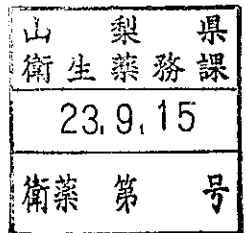 山梨県
衛生薬務課
23.9.15
衛薬第 号